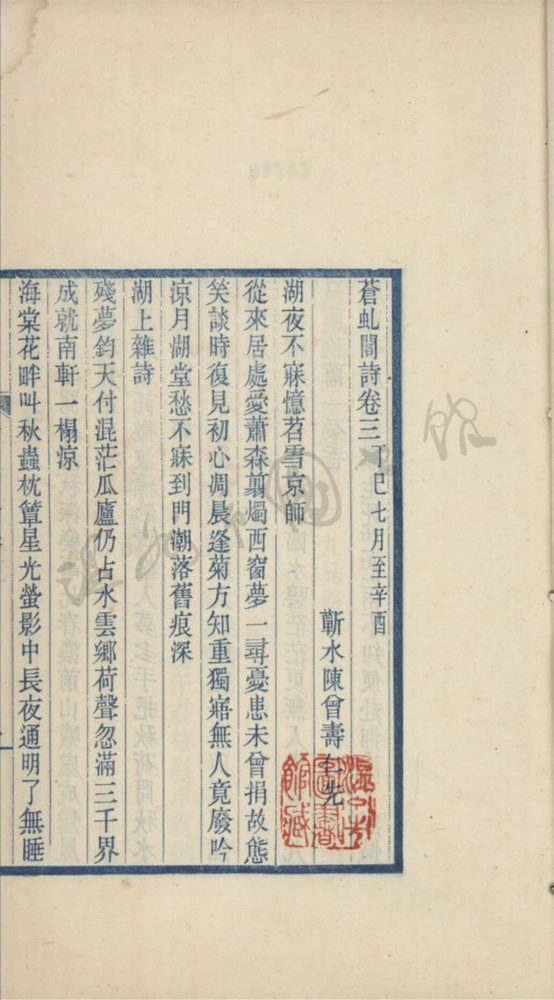 蒼虬閣詩卷三 丁巳七月至辛酉
蘄水陳曾壽仁先
湖夜不寐憶苕雪京師
從來居處愛蕭森翦燭西窗夢一尋憂患未曾捐故態
笑談時復見初心凋晨逢菊方知重獨寤無人竟廢吟
涼月湖堂愁不寐到門潮落舊痕深
湖上雜詩
殘夢鈞天付混茫瓜廬仍占水雲鄉荷聲忽滿三千界
成就南軒一榻涼
海棠花畔叫秋蟲枕簟星光螢影中長夜通明了無睡
溫州市
圖書
館藏